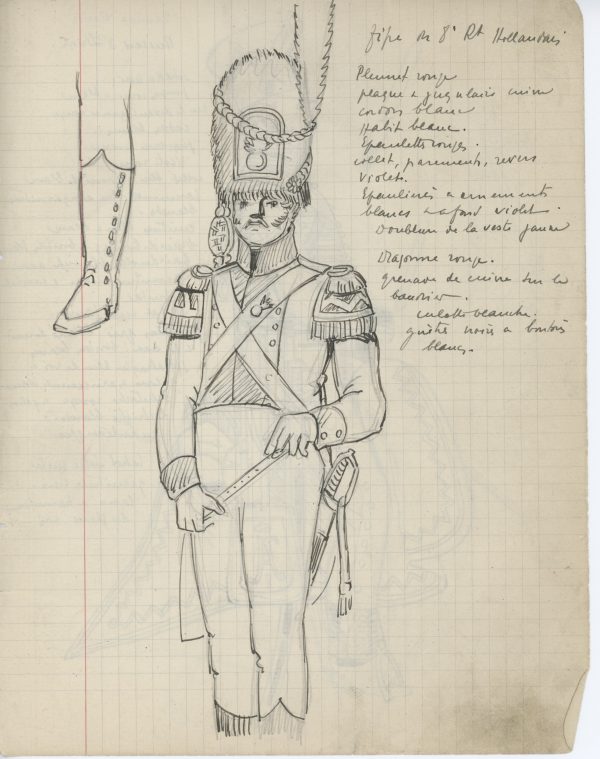 fifre du 8e Rt Hollandais
Plumet rouge
plaque & jugulaire cuivre
cordons blanc
Habit blanc.
Epaulettes rouges.
collet, parements, revers
violets.
Epaulières à ornements
blancs à fond violet.
Doublure de la veste jaune
Dragonne rouge.
grenade de cuivre sur le
baudrier.
culotte blanche.
guêtres noires à boutons
blancs.